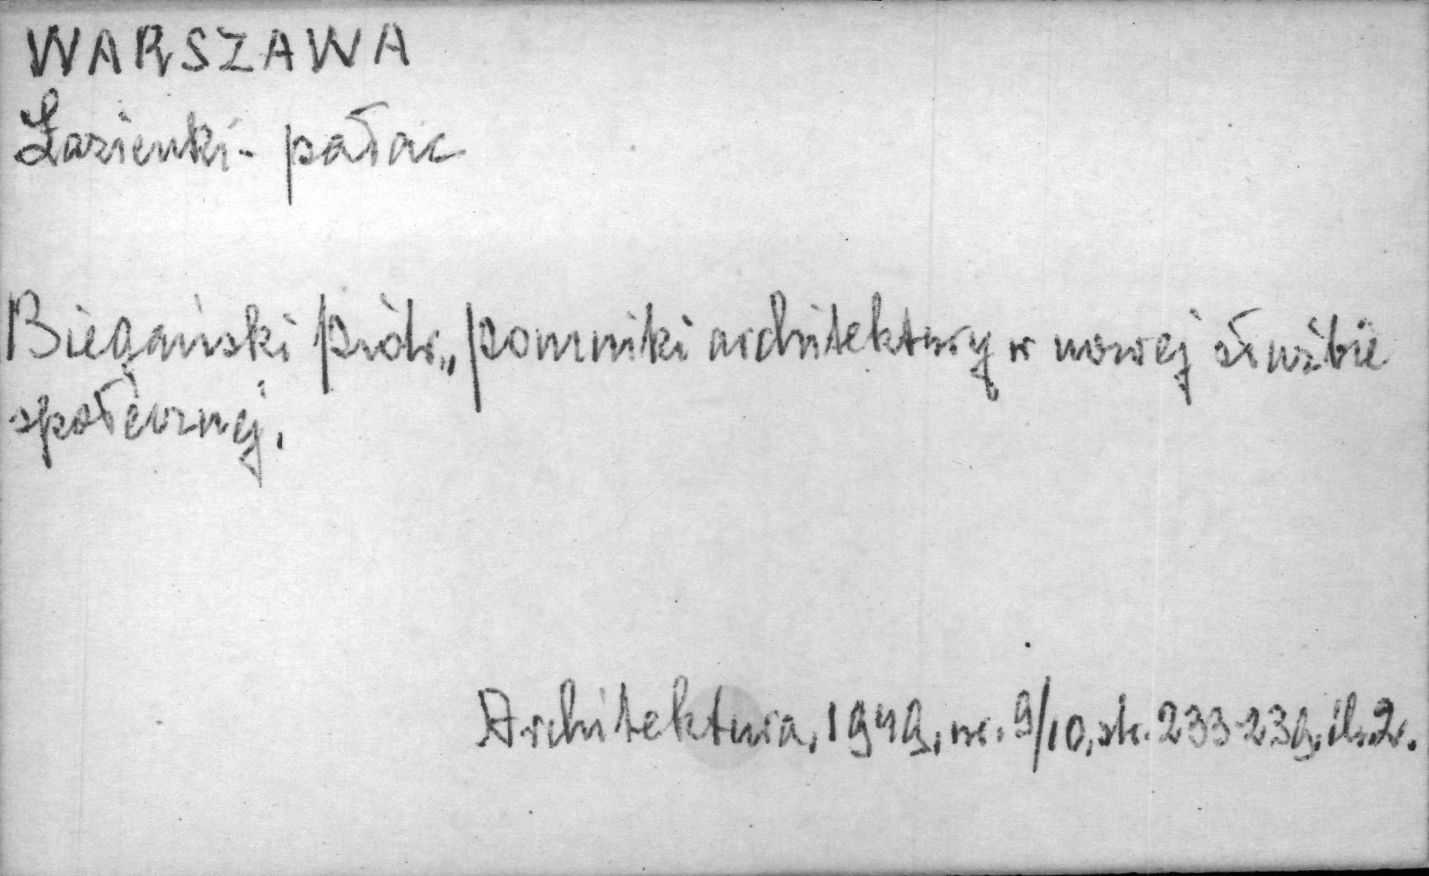 WARSZAWA
Łazienki - pałac
Biegański Piotr „Pomniki architektury w nowej służbie
społecznej.
Architektura, 1949, nr. 9/10, str. 233-239, il. 2.